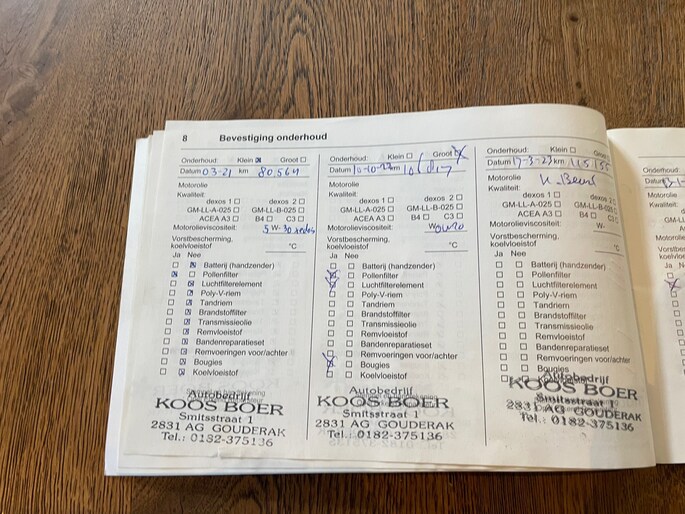 8 Bevestiging onderhoud
Onderhoud: Klein Groot
Datum 03-21 km 80564
Motorolie
Kwaliteit:
dexos 1 dexos 2
GM-LL-A-025 GM-LL-B-025
ACEA A3 B4 C3
Motorolieviscositeit: 5 W- 30
Vorstbescherming,
koelvloeistof °C
Ja Nee
Batterij (handzender)
Pollenfilter
Luchtfilterelement
Poly-V-riem
Tandriem
Brandstoffilter
Transmissieolie
Remvloeistof
Bandenreparatieset
Remvoeringen voor/achter
Bougies
Koelvloeistof
Autobedrijf
KOOS BOER
Smitsstraat 1
2831 AG GOUDERAK
Tel.: 0182-375136
Onderhoud: Klein Groot
Datum km
Motorolie
Kwaliteit:
dexos 1 dexos 2
GM-LL-A-025 GM-LL-B-025
ACEA A3 B4 C3
Motorolieviscositeit: W
Vorstbescherming,
koelvloeistof °C
Ja Nee
Batterij (handzender)
Pollenfilter
Luchtfilterelement
Poly-V-riem
Tandriem
Brandstoffilter
Transmissieolie
Remvloeistof
Bandenreparatieset
Remvoeringen voor/achter
Bougies
Koelvloeistof
Autobedrijf
KOOS BOER
Smitsstraat 1
2831 AG GOUDERAK
Tel.: 0182-375136
Onderhoud: Klein Groot
Datum 17-3-23 km 115155
Motorolie
Kwaliteit:
dexos 1 dexos 2
GM-LL-A-025 GM-LL-B-025
ACEA A3 B4 C3
Motorolieviscositeit: W-
Vorstbescherming,
koelvloeistof °C
Ja Nee
Batterij (handzender)
Pollenfilter
Luchtfilterelement
Poly-V-riem
Tandriem
Brandstoffilter
Transmissieolie
Remvloeistof
Bandenreparatieset
Remvoeringen voor/achter
Bougies
Autobedrijf
KOOS BOER
Smitsstraat 1
2831 AG GOUDERAK
Tel.: 0182-375136